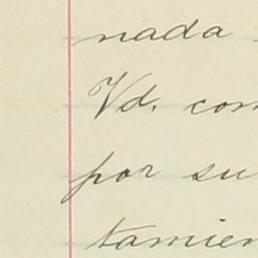 nada
Vd. com
por su
tamien